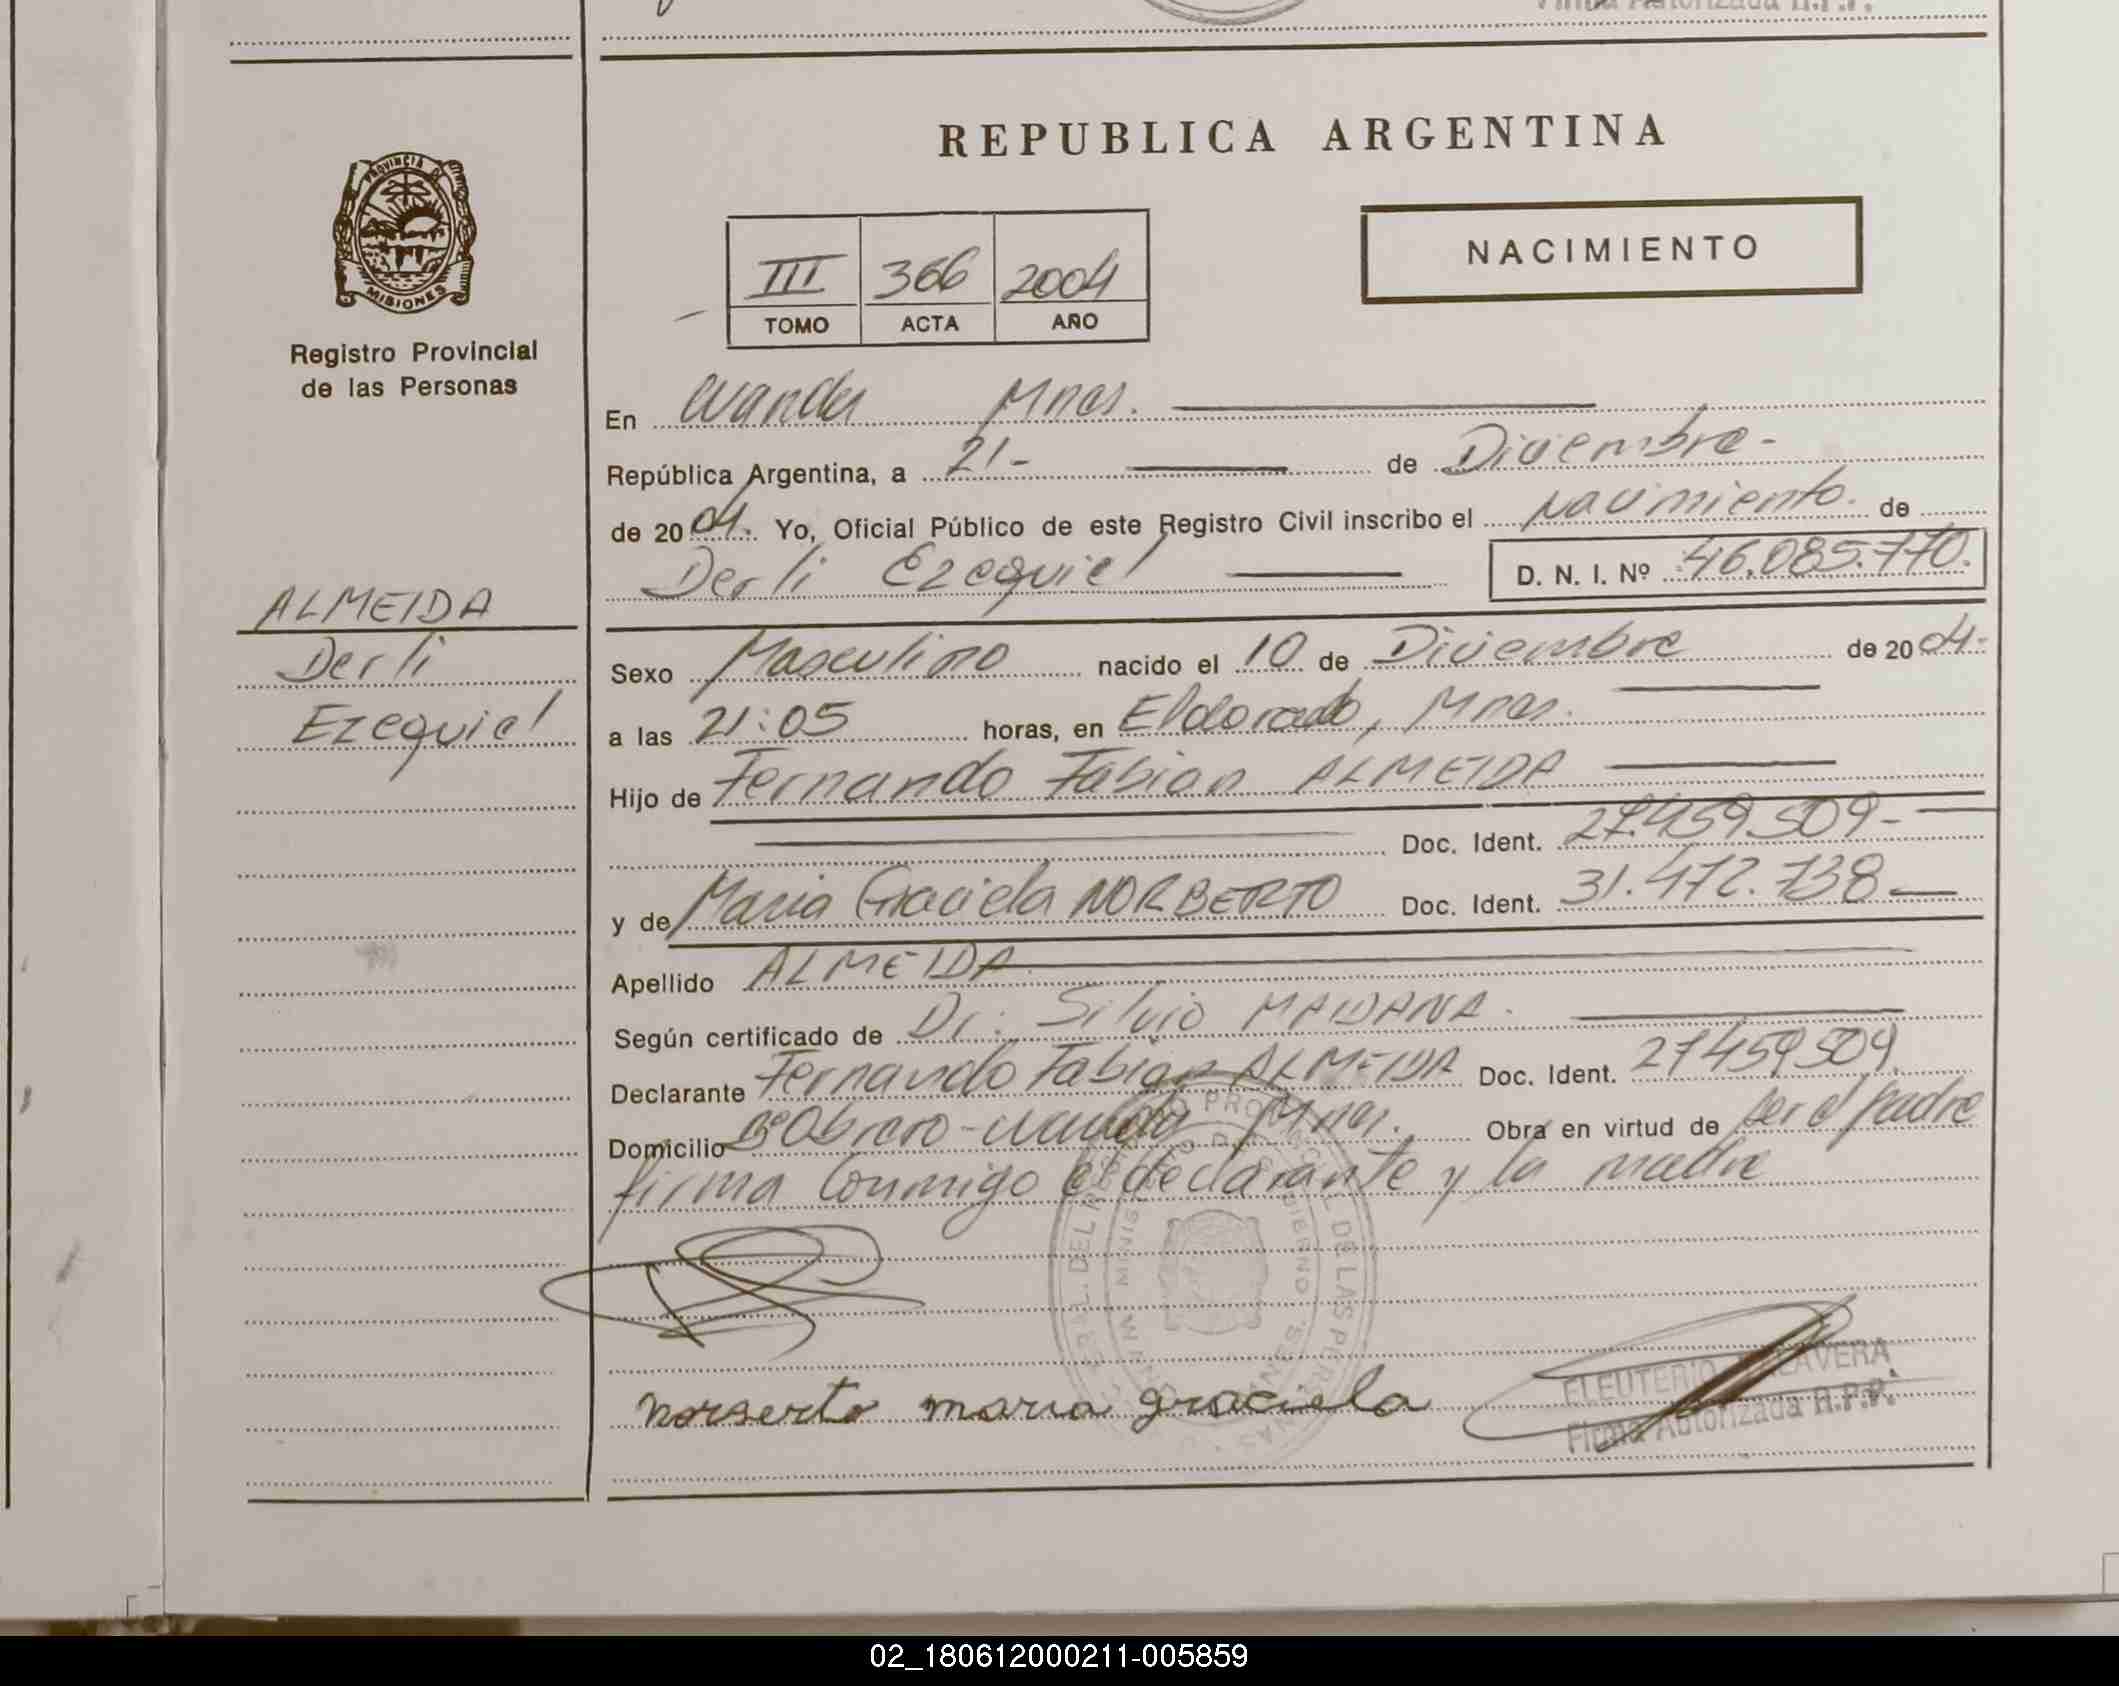 Firma Autorizada R.P.P.
REPUBLICA ARGENTINA
PROVINCIA DE
MISIONES
NACIMIENTO
III 366 2004
TOMO ACTA AÑO
Registro Provincial
de las Personas
En Wanda Mnes.
República Argentina, a 21- de Diciembre-
de 2004. Yo, Oficial Público de este Registro Civil inscribo el Nacimiento. de
Derli Ezequiel D. N. I. Nº 46.085.770.
ALMEIDA
Derli
Ezequiel
Sexo Masculino nacido el 10 de Diciembre de 2004-
a las 21:05 horas, en Eldorado, Mnes.
Hijo de Fernando Fabian ALMEIDA
Doc. Ident. 27.459.509-
y de Maria Graciela NORBERTO Doc. Ident. 31.472.738
Apellido ALMEIDA
Según certificado de Dr. Silvio MAIDANA.
Declarante Fernando Fabian ALMEIDA Doc. Ident. 27459509.
Domicilio Bº Obrero-Wanda Mnes. Obra en virtud de ser el padre
firma Conmigo el declarante y la madre
norberto maria graciela
ELEUTERIO TALAVERA
Firma Autorizada R.P.P.
02_180612000211-005859